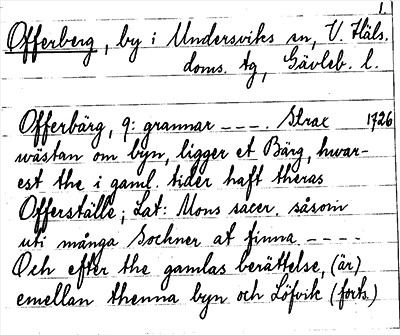 1.
Offerberg, by i Undersviks sn, V. Häls.
doms. tg, Gävleb. l.
Offerbärg, 9: grannar _ _ _ . Strax 1726
wästan om byn, ligger et Bärg, hwar-
est the i gaml. tider haft theras
Offerställe; Lat: Mons sacer. såsom
uti många Sochner at finna. _ _ _ _
Och efter the gamlas berättelse, (är)
emellan thenna byn och Löfvik (forts.)